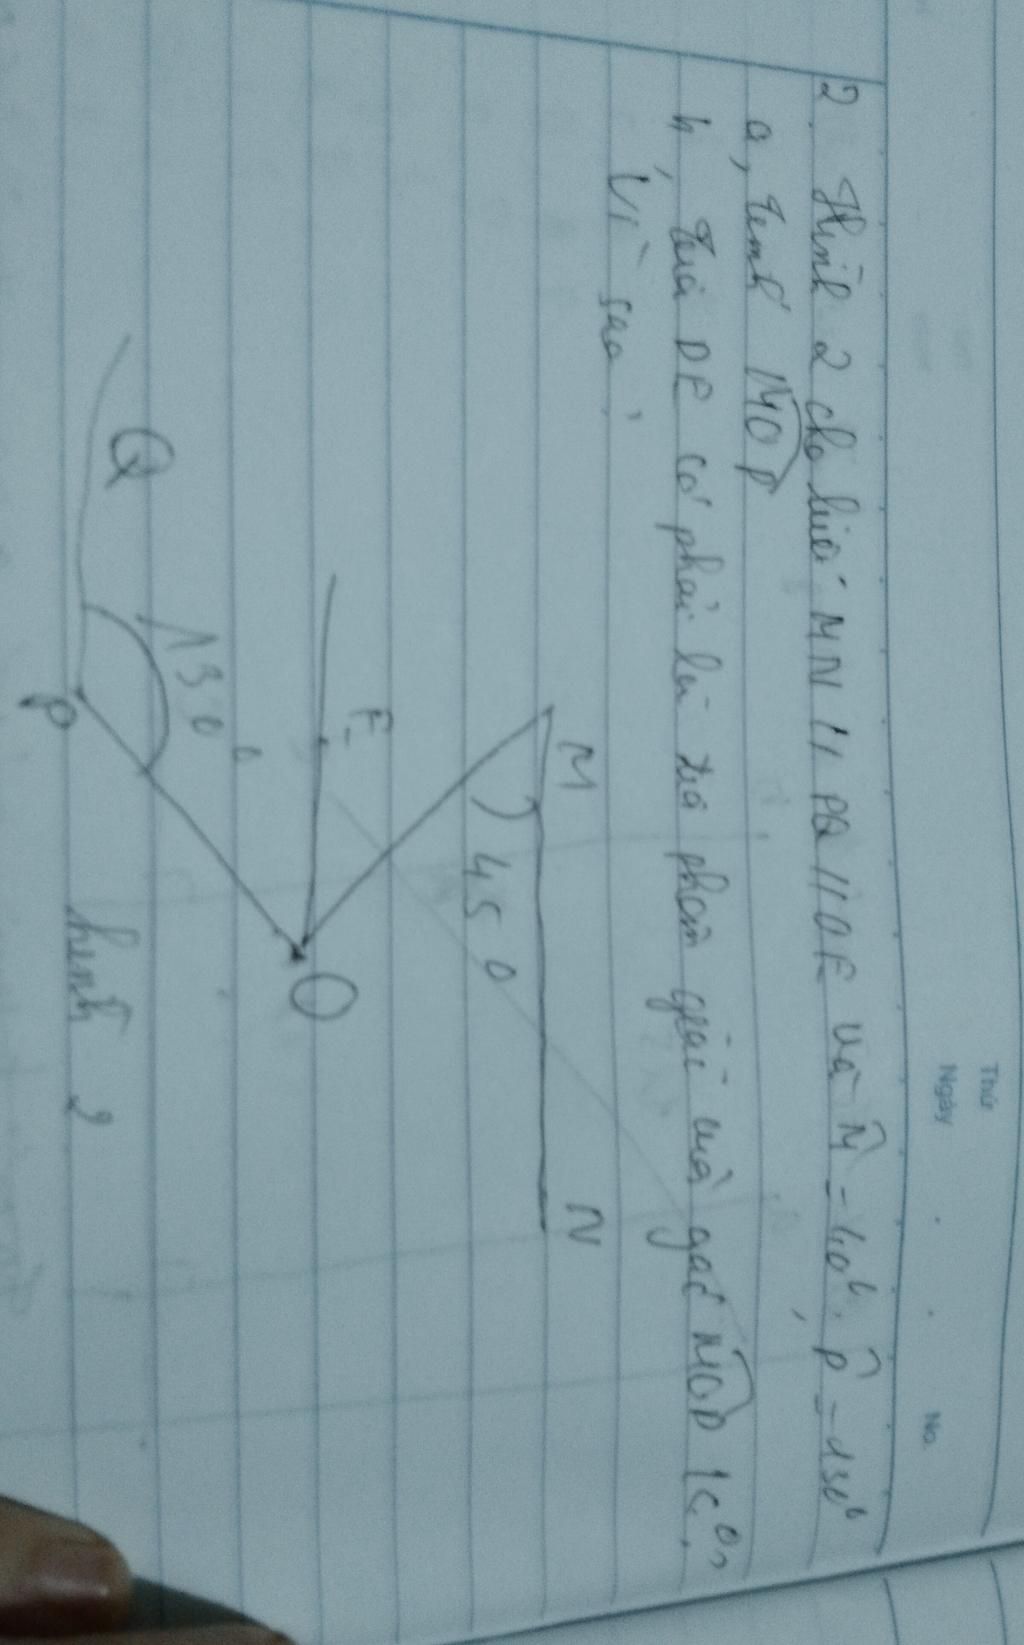 Thứ
Ngày
No.
2. Hình 2 cho biết MN // PQ // OE và M̂ = 40°, P̂ = 130°
a, tính MOP
b, tia OE có phải là tia phân giác của góc MOP
Vì sao?
M
N
45°
E
O
130°
Q
P
hình 2